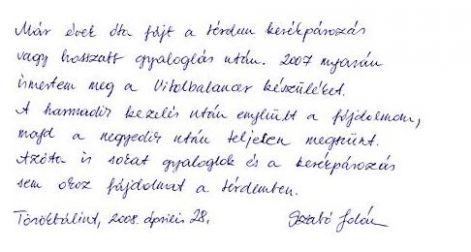 Már évek óta fájt a térdem kerékpározás
vagy hosszabb gyaloglás után. 2007 nyarán
ismertem meg a Vitalbalancer készüléket.
A harmadik kezelés után enyhült a fájdalmam,
majd a negyedik után teljesen megszünt.
Azóta is sokat gyaloglok és a kerékpározás
sem okoz fájdalmat a térdemben.
Törökbálint, 2008. április 28. Szabó